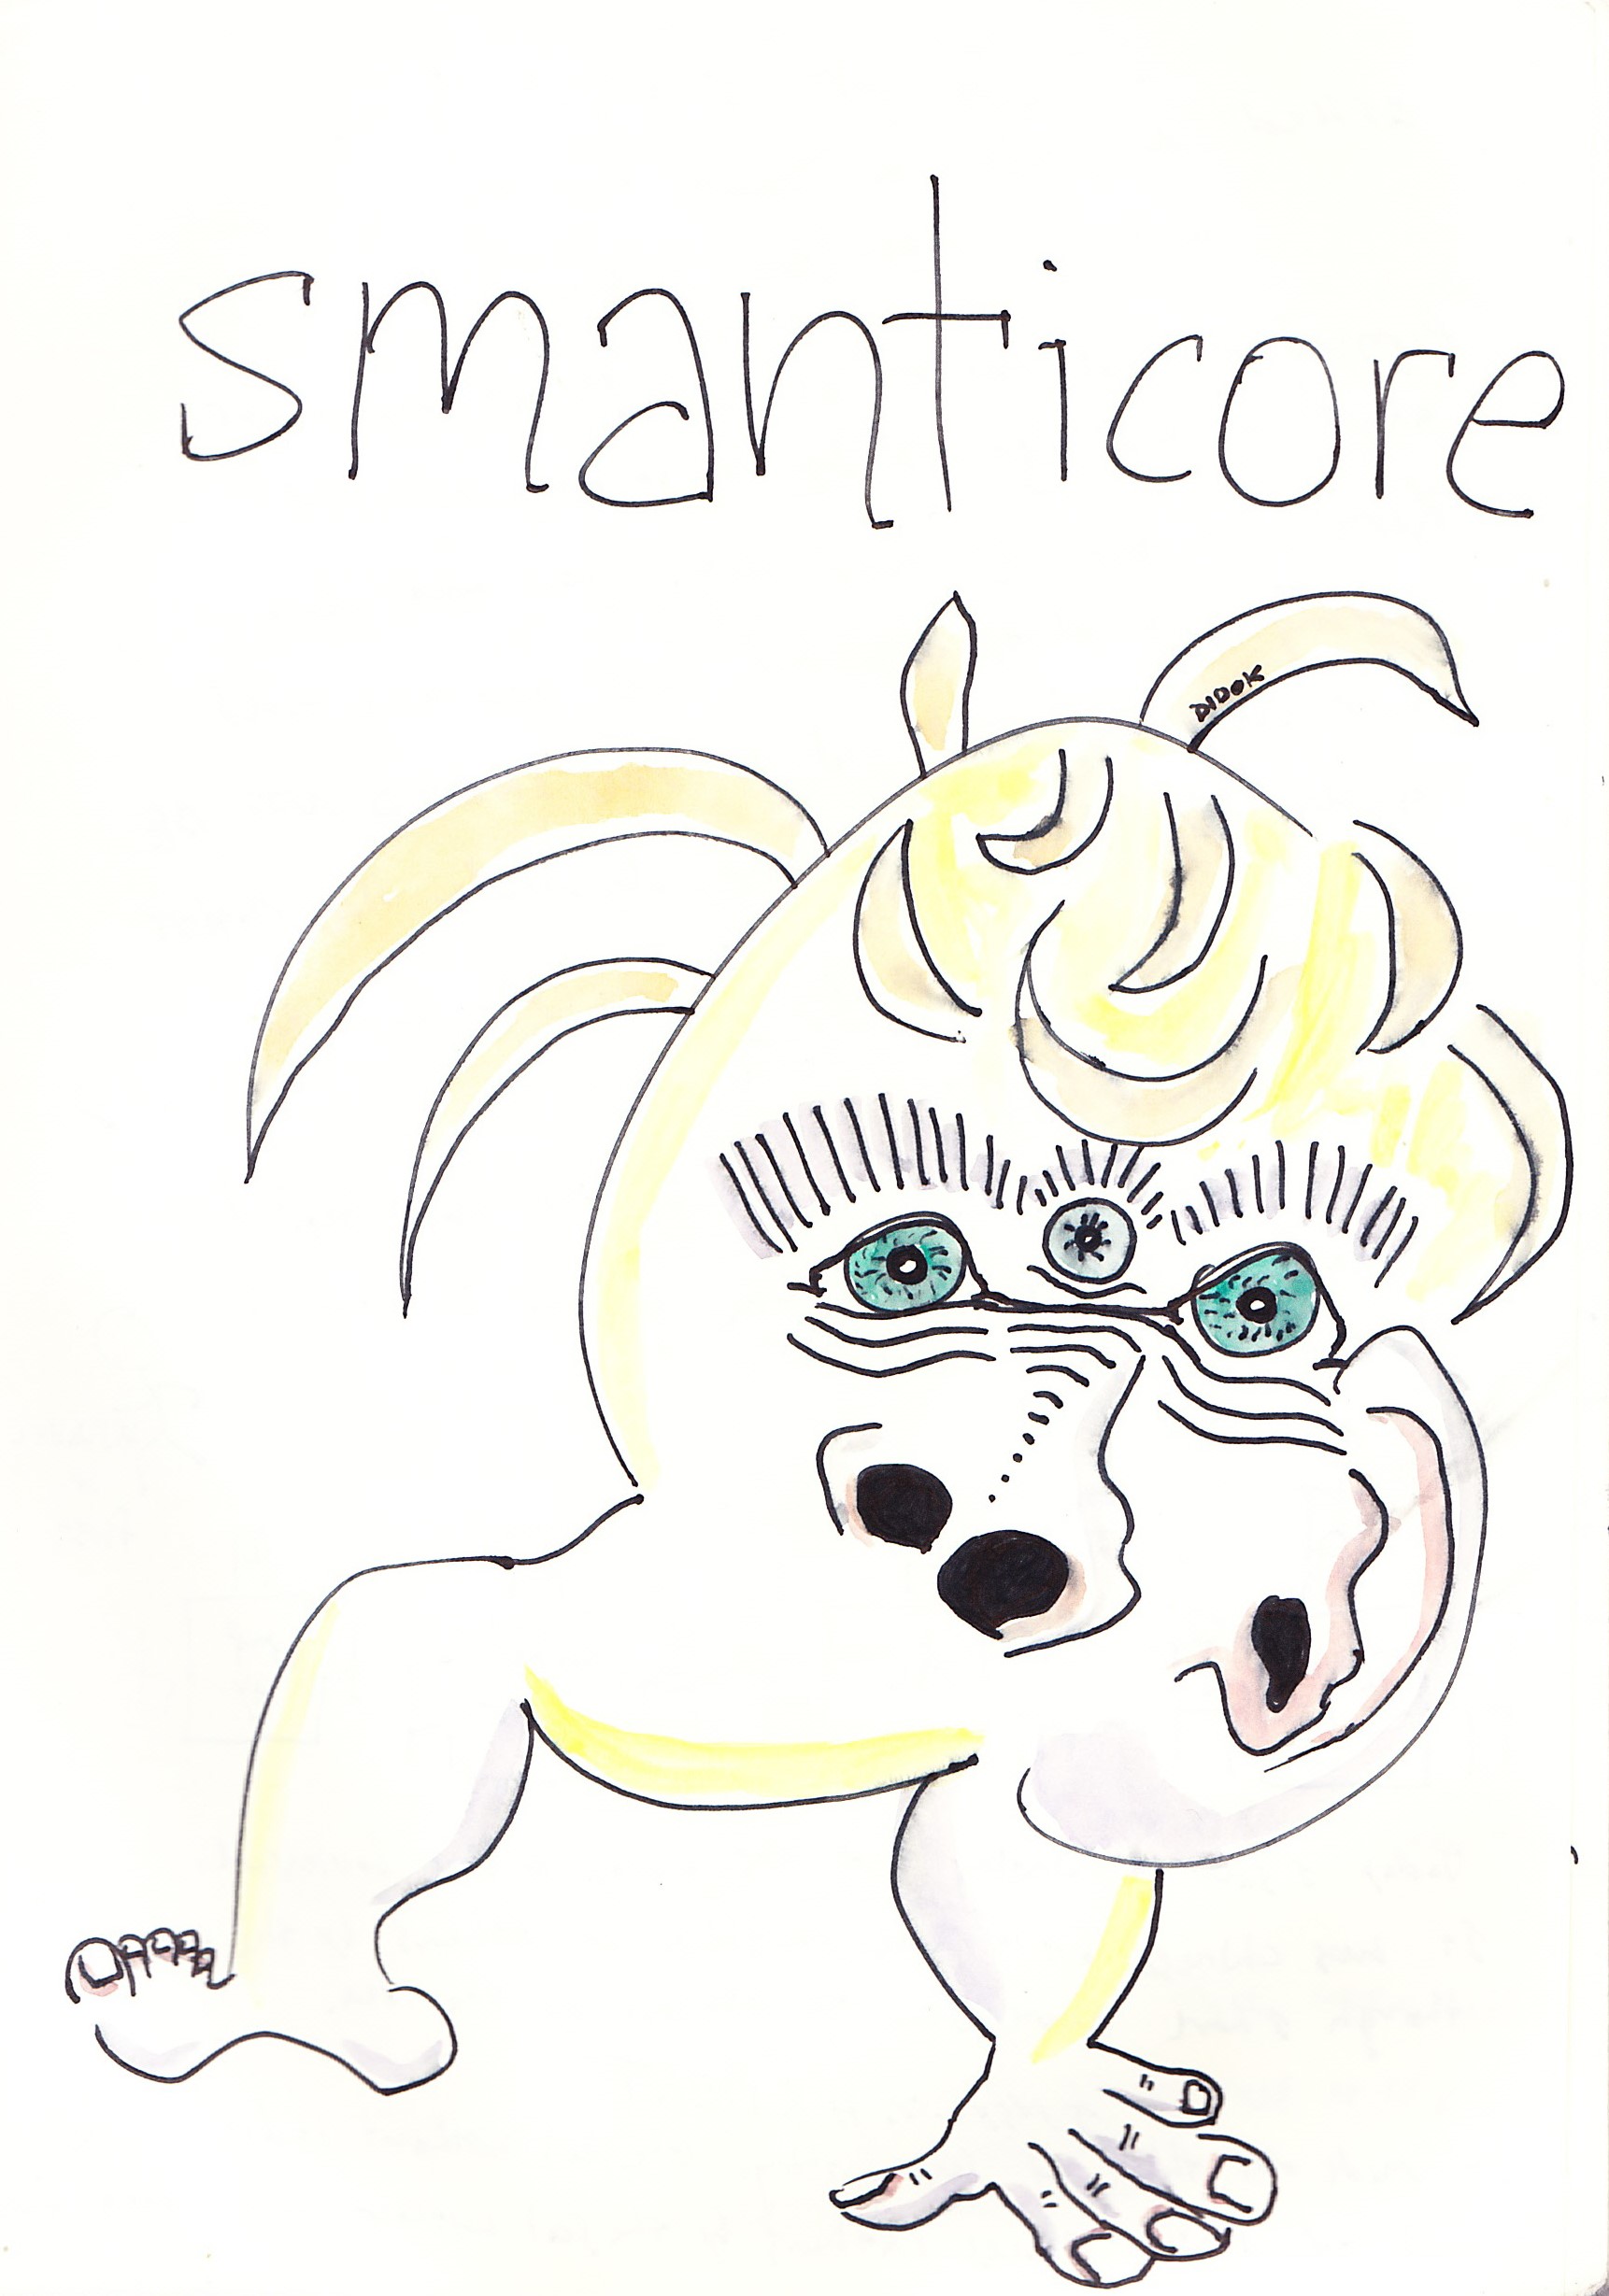 smanticore
DIDOK